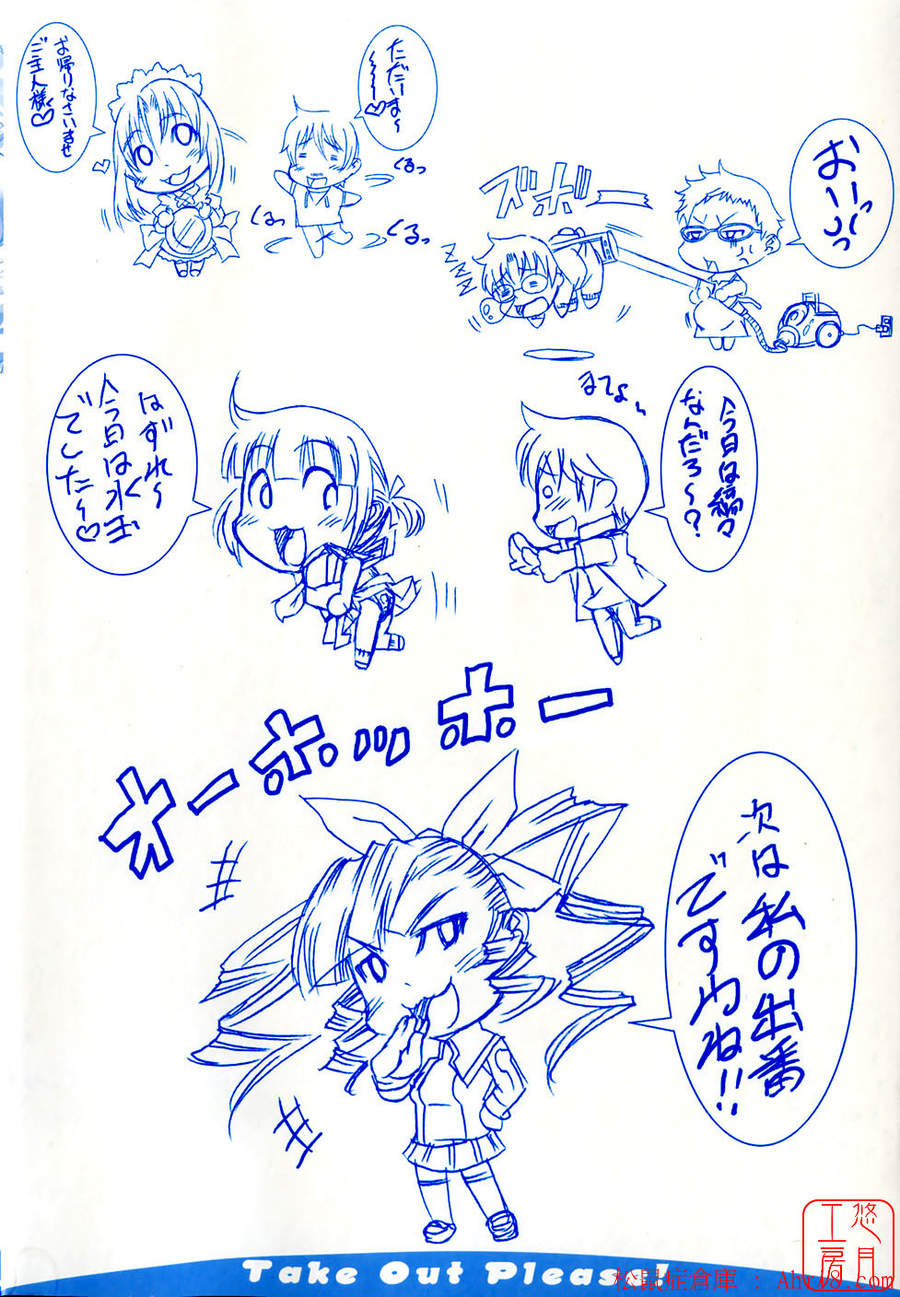 おーいっっ
ズボーーー
zzzz
ただいま～
～～～♡
くるっ
くるっ
くるっ
お帰りなさいませ
ご主人様♡
今日は縞々
なんだろ～？
まてよぉ～
はずれ～
今日は水玉
でした～♡
オーホッホー
次は私の出番
ですわね!!
Take Out Please!
悠月
工房
松鼠症倉庫 : Ahri8.com